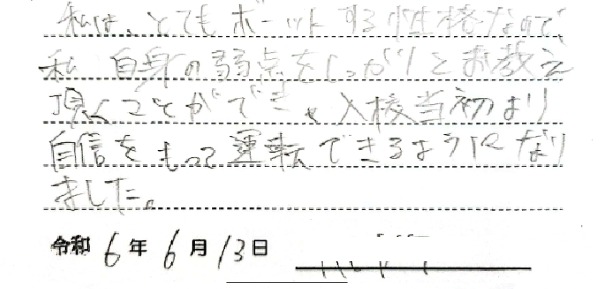 私は、とてもボーットする性格なので、
私自身の弱点をしっかりとお教え
頂くことができ、入校当初より
自信をもって運転できるように
なりました。
令和6年6月13日